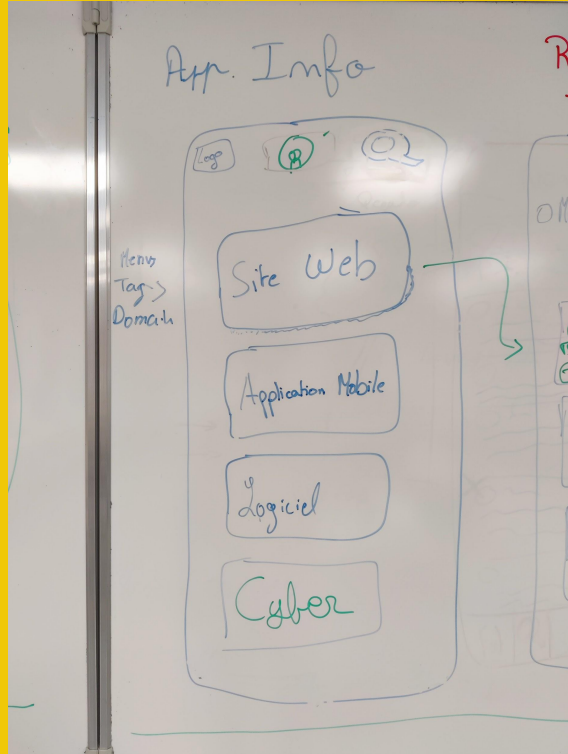 App. Info
Logo
Menu
Tag
Domain
Site Web
Application Mobile
Logiciel
Cyber
R
M